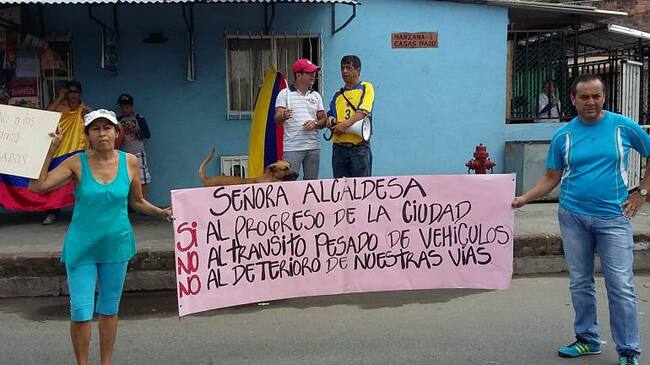 MANZANA-1
CASAS 11A20
NO a los
SADOS
SEÑORA ALCALDESA
SI AL PROGRESO DE LA CIUDAD
NO AL TRANSITO PESADO DE VEHÍCULOS
NO AL DETERIORO DE NUESTRAS VÍAS
3